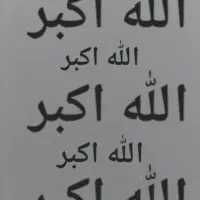 الله اكبر
الله اكبر
الله اكبر
الله اكبر
الله اكبر